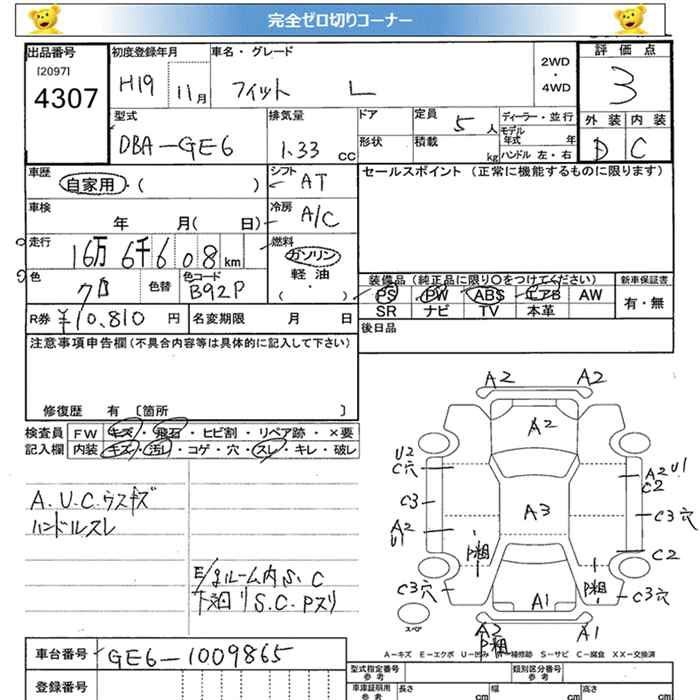 完全ゼロ切りコーナー
出品番号 初度登録年月 車名・グレード 評価点
[2097]
4307
H19 11月 フィット L 2WD・4WD 3
型式 排気量 ドア 定員 ディーラー・並行 外装 内装
DBA-GE6 1.33 CC 形状 積載 5人 kg モデル年式 年 ハンドル 左・右 D C
車歴 シフト セールスポイント (正常に機能するものに限ります)
自家用・( ) AT
車検 冷房
年 月( 日) A/C
走行 燃料
16万 6千 6 0 8 km ガソリン
色 色替 色コード 軽油
クロ B92P ・( )
装備品 (純正品に限り〇をつけてください) 新車保証書
PS PW ABS エアB AW 有・無
SR ナビ TV 本革
R券 ¥10,810 円 名変期限 月 日
後日品
注意事項申告欄 (不具合内容等は具体的に記入して下さい)
修復歴 有 [箇所 ]
検査員 FW キズ・飛石・ヒビ割・リペア跡・×要
記入欄 内装 キズ・汚レ・コゲ・穴・スレ・キレ・破レ
A.U.C.ウスキズ
ハンドルスレ
E/gルーム内 S.C
下廻り S.C.Pスリ
A2 A2
A2
U2
C穴
A2 U1
C2
C3
A3
C3穴
A2
U1
P粗
C2
C3穴
P粗
C3穴
A1
スペア
A2
P粗
A1
A-キズ E-エクボ U-凹み P-補修跡 S-サビ C-腐食 XX-交換済
車台番号 GE6-1009865
登録番号
型式指定番号 参考 類別区分番号 参考
車庫証明用 参考 長さ cm 幅 cm 高さ cm